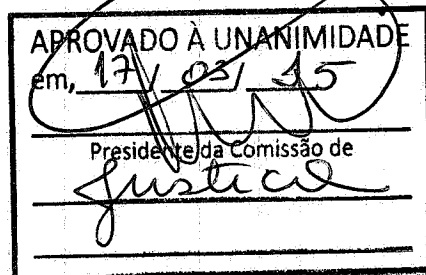 APROVADO À UNANIMIDADE
em, 17 / 03 / 15
Presidente da Comissão de
Justiça